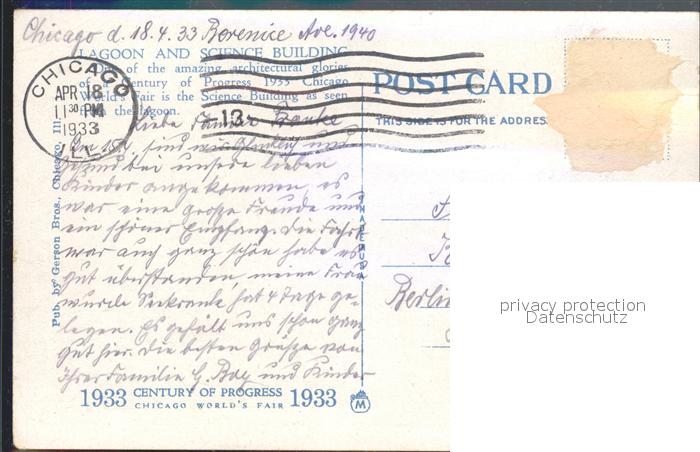 Chicago d. 18.4.33 Berenice Ave. 1940
LAGOON AND SCIENCE BUILDING
One of the amazing architectural glories
of a Century of Progress 1933 Chicago
World's Fair is the Science Building as seen
from the lagoon.
CHICAGO
APR 18
11 30 PM
1933
ILL.
13
POST CARD
THIS SIDE IS FOR THE ADDRESS
Liebe Familie Franke
Am 15ten sind wir Glücklich und
gesund bei unsere lieben
Kinder angekommen, es
war eine große Freude und
ein schöner Empfang. Die Fahrt
war auch ganz schön habe es
gut überstanden, meine Frau
wurde Seekrank, hat 4 Tage ge-
legen. Es gefällt uns schon ganz
gut hier. Die besten Grüße von
Ihrer Familie G. Bay und Kinder
Pub. by Gerson Bros., Chicago, Ill.
Berlin
privacy protection
Datenschutz
1933 CENTURY OF PROGRESS 1933
CHICAGO WORLD'S FAIR
M